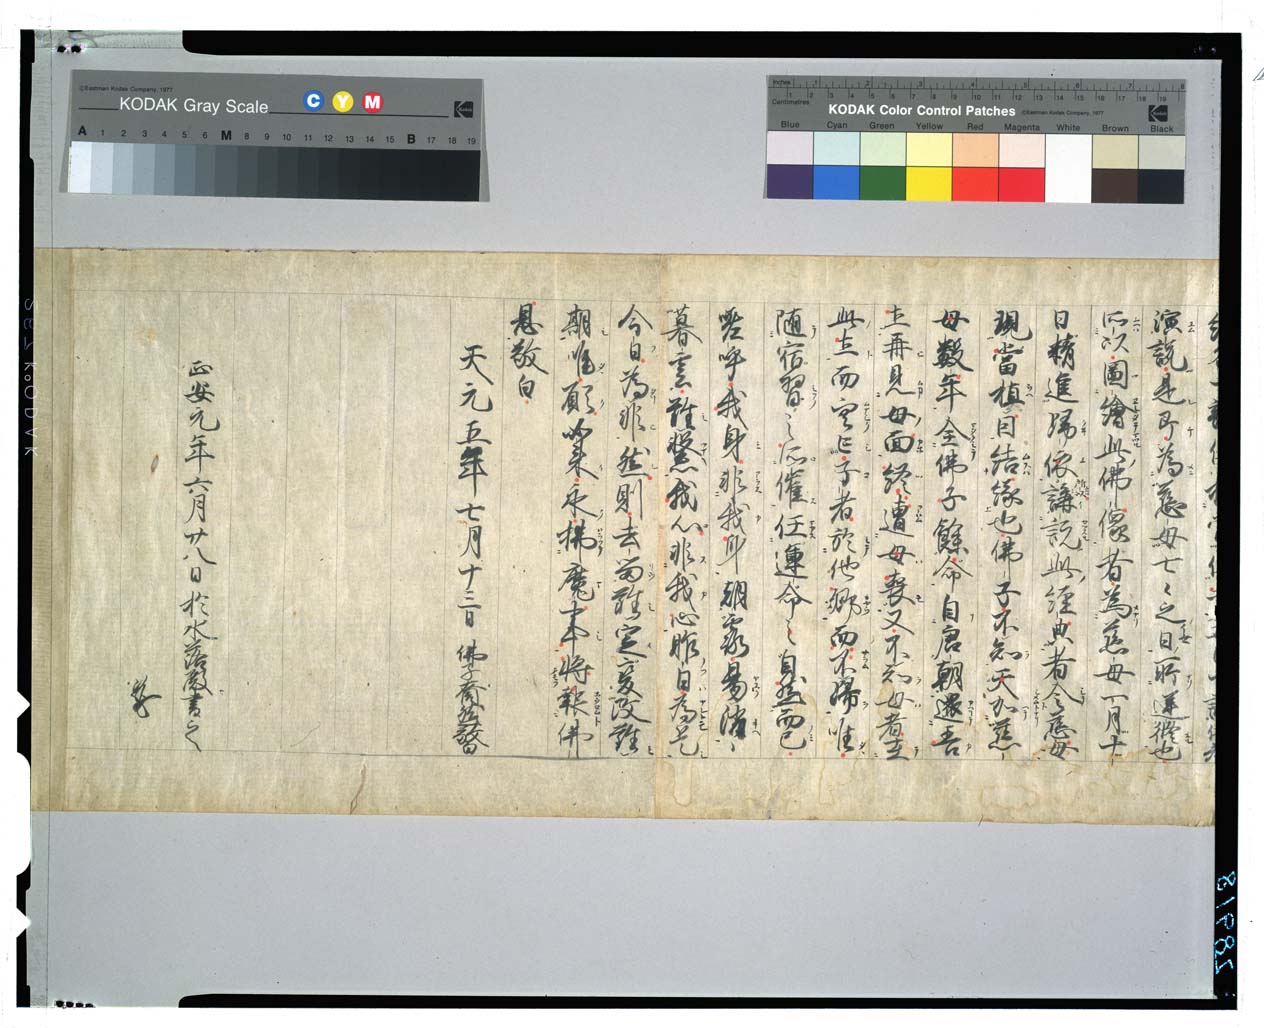 ©Eastman Kodak Company, 1977
KODAK Gray Scale
C Y M
Kodak
A 1 2 3 4 5 6 M 8 9 10 11 12 13 14 15 B 17 18 19
Inches 1 2 3 4 5 6 7 8
Centimetres 1 2 3 4 5 6 7 8 9 10 11 12 13 14 15 16 17 18 19
KODAK Color Control Patches ©Eastman Kodak Company, 1977
Kodak
Blue Cyan Green Yellow Red Magenta White Brown Black
演説是即為慈母七々之日所運徳也
所以圖繪此佛像者為慈母一月十
日精進歸依講説此經典者令慈母
現當植因結縁也佛子不知天加慈
母数年全佛子餘命自唐朝還吾
土再見母面終遭母喪又不知母者在
此土而空亡子者於他郷而不歸唯
随宿習之所催任運命之自然而已
嗟呼我身非我身朝露易消
暮雲難繋我心非我心昨日為是
今日為非然則去留難定変改難
期唯願以来永拂魔事将報佛
恩敬白
天元五年七月十三日 佛子奝然敬白
正安元年六月廿八日於水落殿書之
KODAK